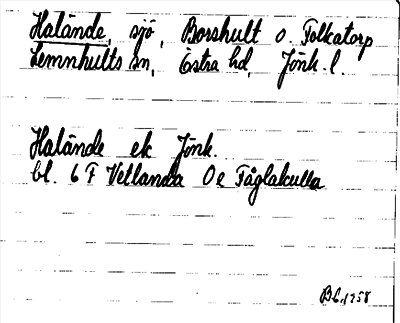 Halände, sjö, Borshult o. Folkatorp
Lemnhults sn, Östra hd, Jönk. l.
Halände ek Jönk.
bl. 6 F Vetlanda 0 e Fåglakulla
Bb. 1958